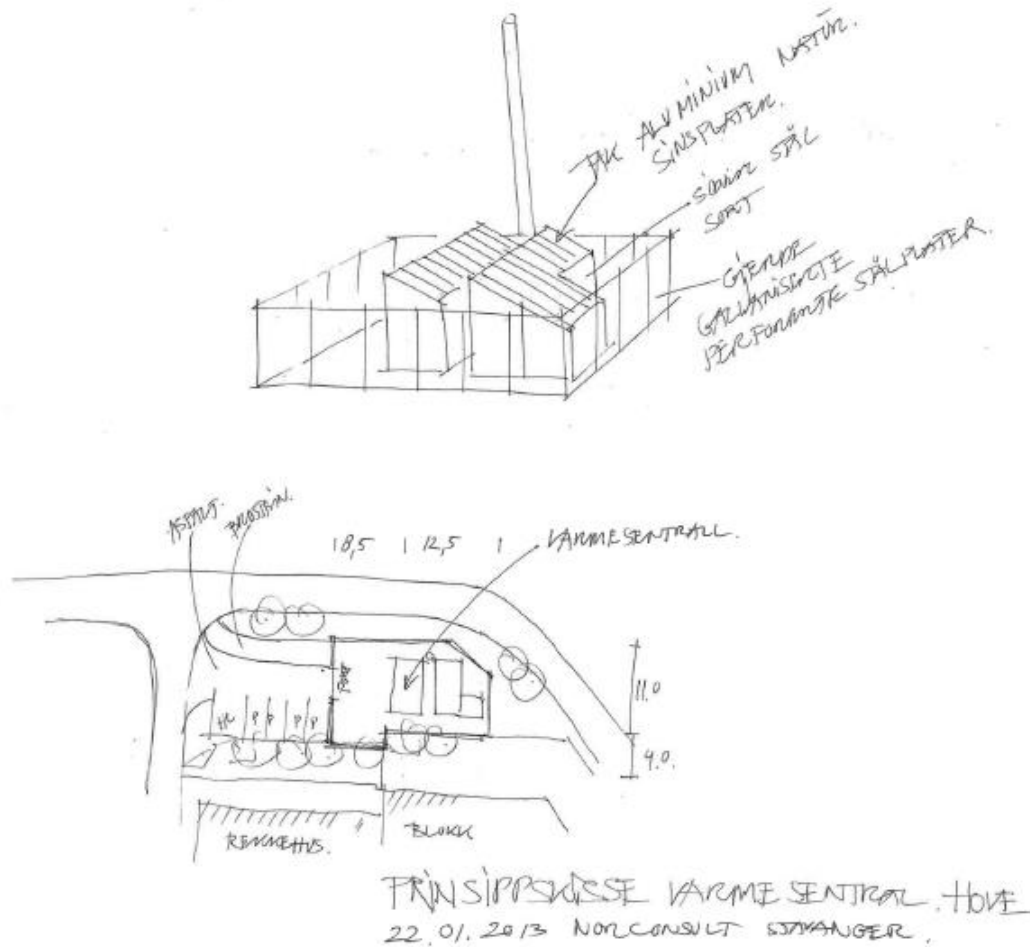 TAK ALUMINIUM NATUR.
SINSPLATER.
SIDER STÅL
SORT
GJERDE
GALVANISERTE
PERFORERTE STÅLPLATER.
ASFALT.
BROSTEIN.
18,5 1 12,5 1
VARMESENTRALL.
PORT
11.0
HC P P P P
4.0.
REKKEHUS.
BLOKK
PRINSIPPSKISSE VARMESENTRAL. HOVE
22.01.2013 NORCONSULT STAVANGER.